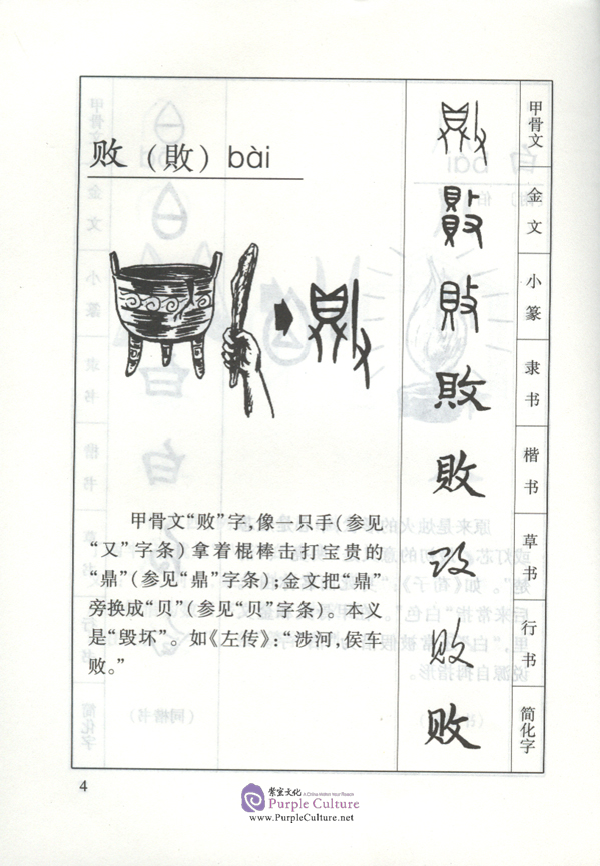 败（敗）bài
甲骨文“败”字，像一只手（参见
“又”字条）拿着棍棒击打宝贵的
“鼎”（参见“鼎”字条）；金文把“鼎”
旁换成“贝”（参见“贝”字条）。本义
是“毁坏”。如《左传》：“涉河，侯车
败。”
甲骨文
金文
敗
小篆
敗
隶书
敗
楷书
敗
草书
行书
败
简化字
败
4
紫宝文化 A China Maven Your Reason
Purple Culture
www.PurpleCulture.net